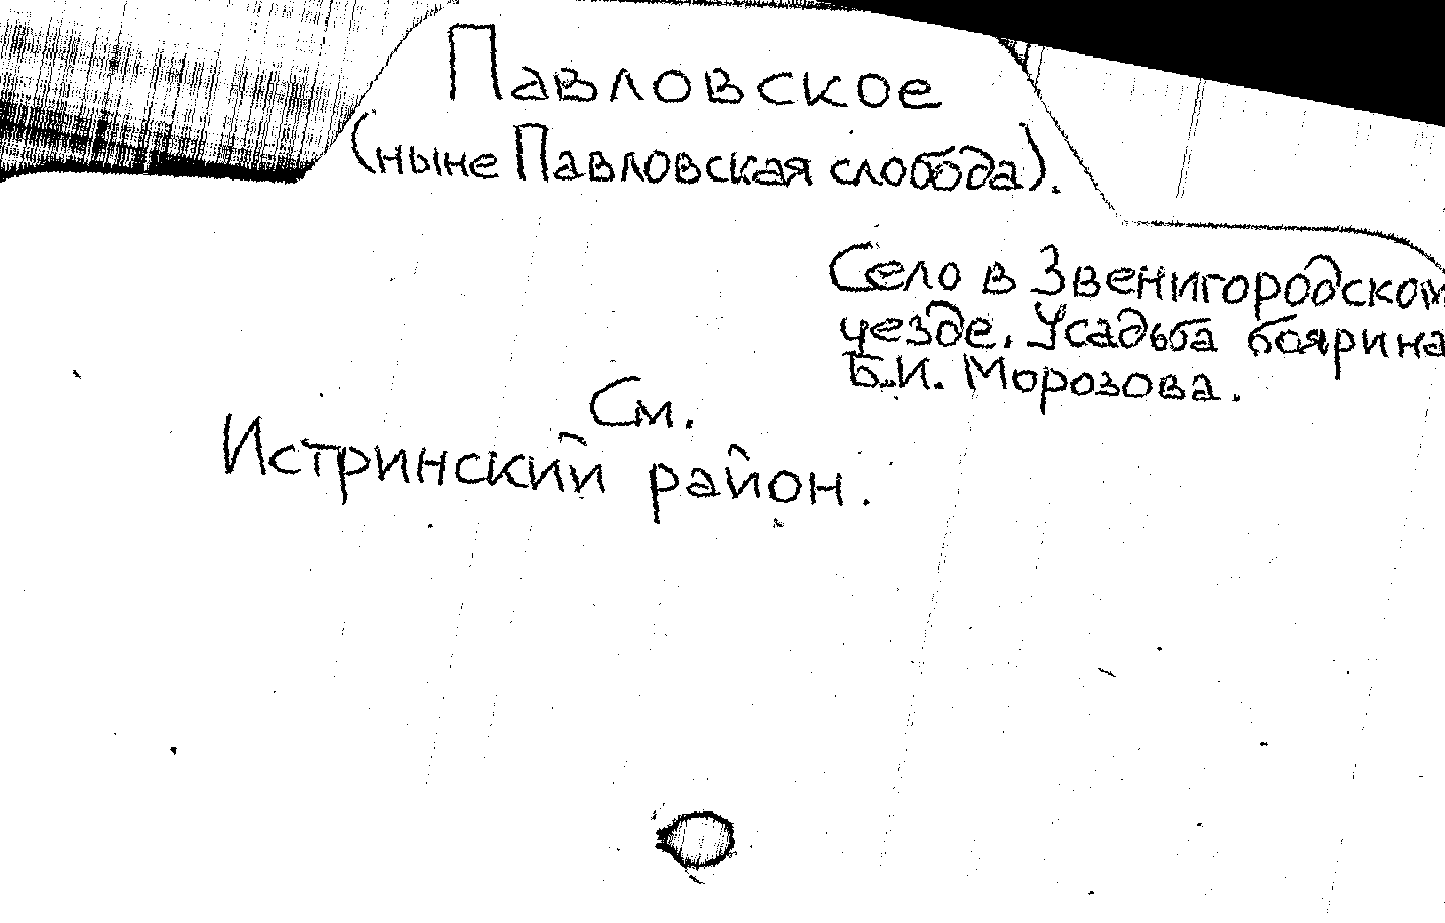 Павловское
(ныне Павловская слобода).
Село в Звенигородском
уезде. Усадьба боярина
Б.И. Морозова.
См.
Истринский район.